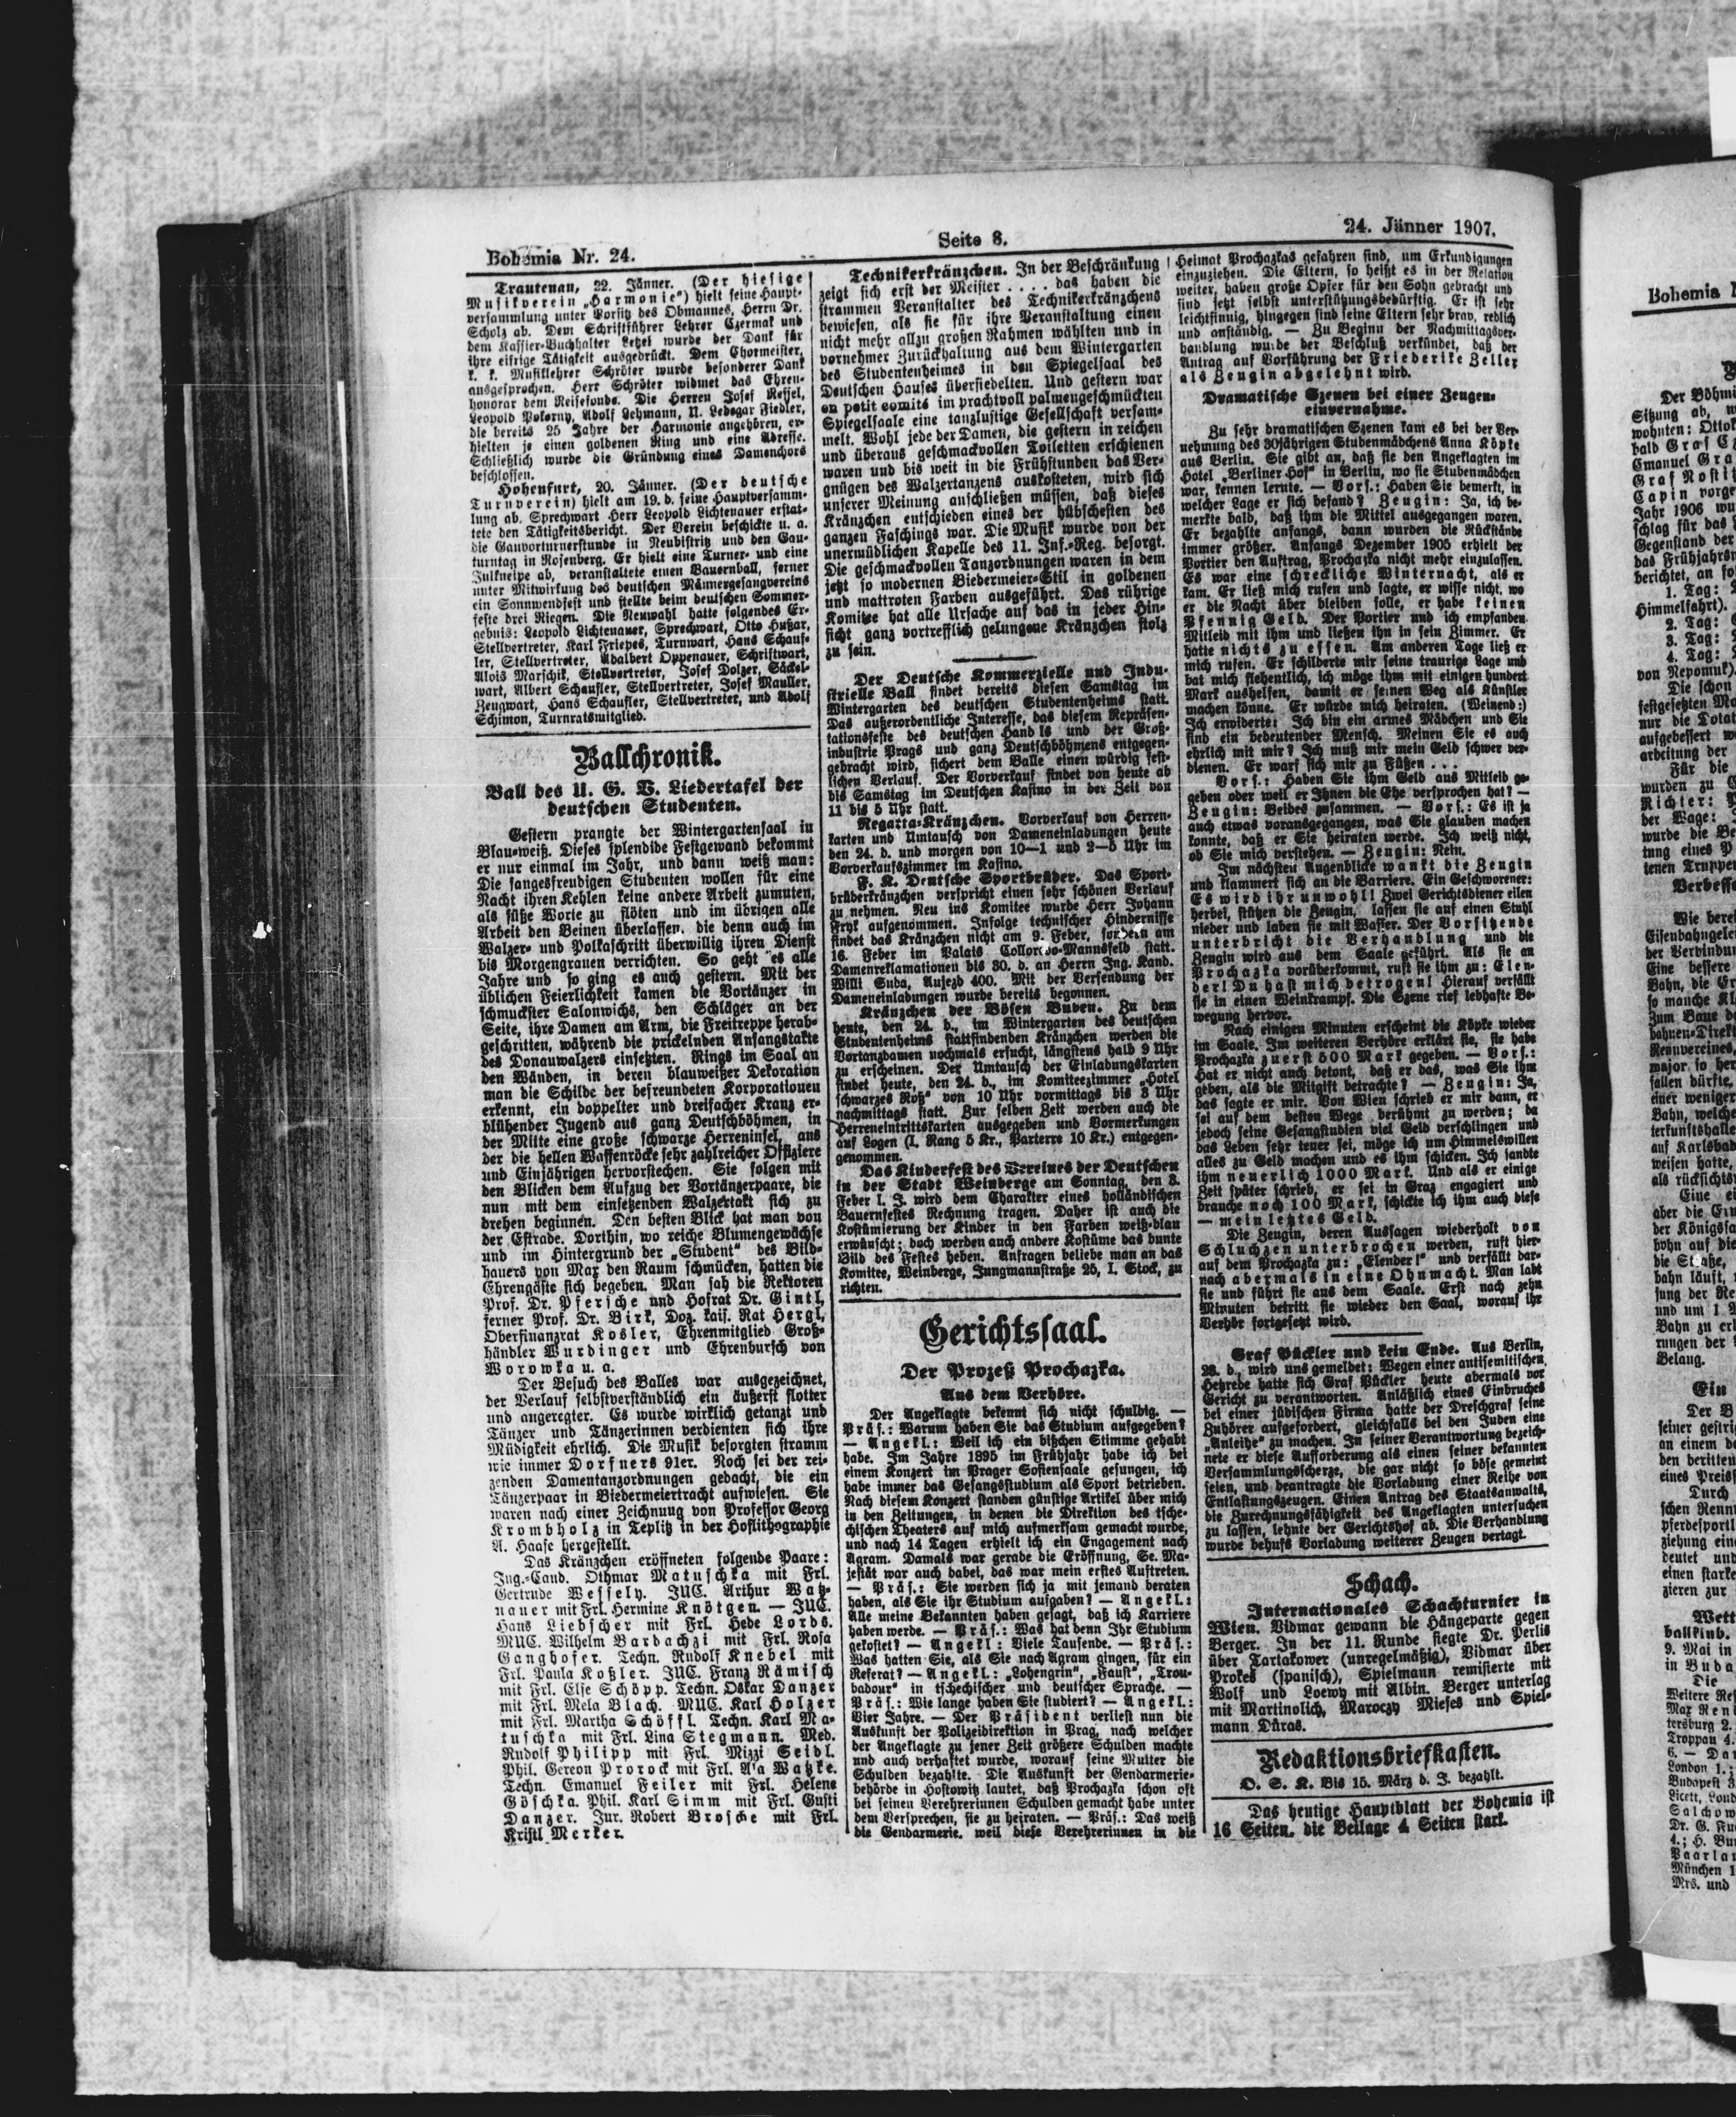 Bohemia Nr. 24.
Seite 8.
24. Jänner 1907.
Trautenau, 22. Jänner. (Der hiesige
Musikverein „Harmonie“) hielt seine Haupt-
versammlung unter Vorsitz des Obmannes, Herrn Dr.
Scholz ab. Dem Schriftführer Lehrer Czermak und
dem Kassier-Buchhalter Letzel wurde der Dank für
ihre eifrige Tätigkeit ausgedrückt. Dem Chormeister,
k. k. Musiklehrer Schröter wurde besonderer Dank
ausgesprochen. Herr Schröter widmet das Ehren-
honorar dem Reisefonde. Die Herren Josef Ressel,
Leopold Pokorny, Adolf Lehmann, U. Ledegar Fiedler,
die bereits 25 Jahre der Harmonie angehören, er-
hielten je einen goldenen Ring und eine Adresse.
Schließlich wurde die Gründung eines Damenchors
beschlossen.
Hohenfurt, 20. Jänner. (Der deutsche
Turnverein) hielt am 19. d. seine Hauptversamm-
lung ab. Sprechwart Herr Leopold Lichtenauer erstat-
tete den Tätigkeitsbericht. Der Verein beschickte u. a.
die Gauvorturnerstunde in Neubistritz und den Gau-
turntag in Rosenberg. Er hielt eine Turner- und eine
Julkneipe ab, veranstaltete einen Bauernball, ferner
unter Mitwirkung des deutschen Männergesangvereins
ein Sonnwendfest und stellte beim deutschen Sommer-
feste drei Riegen. Die Neuwahl hatte folgendes Er-
gebnis: Leopold Lichtenauer, Sprechwart, Otto Hußar,
Stellvertreter, Karl Friepes, Turnwart, Hans Schauf-
ler, Stellvertreter, Adalbert Oppenauer, Schriftwart,
Alois Marschik, Stellvertreter, Josef Dolzer, Säckel-
wart, Albert Schaufler, Stellvertreter, Josef Mauller,
Zeugwart, Hans Schaufler, Stellvertreter, und Adolf
Schimon, Turnratsmitglied.
Ballchronik.
Ball des U. G. V. Liedertafel der
deutschen Studenten.
Gestern prangte der Wintergartensaal in
Blau-weiß. Dieses splendide Festgewand bekommt
er nur einmal im Jahr, und dann weiß man:
Die sangesfreudigen Studenten wollen für eine
Nacht ihren Kehlen keine andere Arbeit zumuten,
als süße Worte zu flöten und im übrigen alle
Arbeit den Beinen überlassen, die denn auch im
Walzer- und Polkaschritt überwillig ihren Dienst
bis Morgengrauen verrichten. So geht es alle
Jahre und so ging es auch gestern. Mit der
üblichen Feierlichkeit kamen die Vortänzer in
schmuckster Salonwichs, den Schläger an der
Seite, ihre Damen am Arm, die Freitreppe herab-
geschritten, während die prickelnden Anfangstakte
des Donauwalzers einsetzten. Rings im Saal an
den Wänden, in deren blauweißer Dekoration
man die Schilde der befreundeten Korporationen
erkennt, ein doppelter und dreifacher Kranz er-
blühender Jugend aus ganz Deutschböhmen, in
der Mitte eine große schwarze Herreninsel, aus
der die hellen Waffenröcke sehr zahlreicher Offiziere
und Einjährigen hervorstechen. Sie folgen mit
den Blicken dem Aufzug der Vortänzerpaare, die
nun mit dem einsetzenden Walzertakt sich zu
drehen beginnen. Den besten Blick hat man von
der Estrade. Dorthin, wo reiche Blumengewächse
und im Hintergrund der „Student“ des Bild-
hauers von Max den Raum schmücken, hatten die
Ehrengäste sich begeben. Man sah die Rektoren
Prof. Dr. Pfersche und Hofrat Dr. Gintl,
ferner Prof. Dr. Birk, Doz. kais. Rat Hergl,
Oberfinanzrat Kosler, Ehrenmitglied Groß-
händler Wurdinger und Ehrenbursch von
Worowka u. a.
Der Besuch des Balles war ausgezeichnet,
der Verlauf selbstverständlich ein äußerst flotter
und angeregter. Es wurde wirklich getanzt und
Tänzer und Tänzerinnen verdienten sich ihre
Müdigkeit ehrlich. Die Musik besorgten stramm
wie immer Dorfners 91er. Noch sei der rei-
zenden Damentanzordnungen gedacht, die ein
Tänzerpaar in Biedermeiertracht aufwiesen. Sie
waren nach einer Zeichnung von Professor Georg
Krombholz in Teplitz in der Hoflithographie
A. Haase hergestellt.
Das Kränzchen eröffneten folgende Paare:
Ing.-Cand. Othmar Matuschka mit Frl.
Gertrude Wessely. JUC. Arthur Watz-
nauer mit Frl. Hermine Knötgen. — JUC.
Hans Liebscher mit Frl. Hede Lords.
MUC. Wilhelm Bardachzi mit Frl. Rosa
Ganghofer. Techn. Rudolf Knebel mit
Frl. Paula Koßler. JUC. Franz Rämisch
mit Frl. Else Schöpp. Techn. Oskar Danzer
mit Frl. Mela Blach. MUC. Karl Holzer
mit Frl. Martha Schöffl. Techn. Karl Ma-
tuschka mit Frl. Lina Stegmann. Med.
Rudolf Philipp mit Frl. Mizzi Seidl.
Phil. Gereon Prorock mit Frl. Watzke.
Techn. Emanuel Feiler mit Frl. Helene
Göschka. Phil. Karl Simm mit Frl. Gusti
Danzer. Jur. Robert Brosche mit Frl.
Kristl Merker.
Technikerkränzchen. In der Beschränkung
zeigt sich erst der Meister .... das haben die
strammen Veranstalter des Technikerkränzchens
bewiesen, als sie für ihre Veranstaltung einen
nicht mehr allzu großen Rahmen wählten und in
vornehmer Zurückhaltung aus dem Wintergarten
des Studentenheimes in den Spiegelsaal des
Deutschen Hauses übersiedelten. Und gestern war
en petit comité im prachtvoll palmengeschmückten
Spiegelsaale eine tanzlustige Gesellschaft versam-
melt. Wohl jede der Damen, die gestern in reichen
und überaus geschmackvollen Toiletten erschienen
waren und bis weit in die Frühstunden das Ver-
gnügen des Walzertanzens auskosteten, wird sich
unserer Meinung anschließen müssen, daß dieses
Kränzchen entschieden eines der hübschesten des
ganzen Faschings war. Die Musik wurde von der
unermüdlichen Kapelle des 11. Inf.-Reg. besorgt.
Die geschmackvollen Tanzordnungen waren in dem
jetzt so modernen Biedermeier-Stil in goldenen
und mattroten Farben ausgeführt. Das rührige
Komitee hat alle Ursache auf das in jeder Hin-
sicht ganz vortrefflich gelungene Kränzchen stolz
zu sein.
Der Deutsche Kommerzielle und Indu-
strielle Ball findet bereits diesen Samstag im
Wintergarten des deutschen Studentenheims statt.
Das außerordentliche Interesse, das diesem Repräsen-
tationsfeste des deutschen Handels und der Groß-
industrie Prags und ganz Deutschböhmens entgegen-
gebracht wird, sichert dem Balle einen würdig fest-
lichen Verlauf. Der Vorverkauf findet von heute ab
bis Samstag im Deutschen Kasino in der Zeit von
11 bis 5 Uhr statt.
Regatta-Kränzchen. Vorverkauf von Herren-
karten und Umtausch von Dameneinladungen heute
den 24. d. und morgen von 10—1 und 2—5 Uhr im
Vorverkaufszimmer im Kasino.
F. K. Deutsche Sportbrüder. Das Sport-
brüderkränzchen verspricht einen sehr schönen Verlauf
zu nehmen. Neu ins Komitee wurde Herr Johann
Fryk aufgenommen. Infolge technischer Hindernisse
findet das Kränzchen nicht am 9. Feber, sondern am
16. Feber im Palais Colloredo-Mannsfeld statt.
Damenreklamationen bis 30. d. an Herrn Ing. Kand.
Willi Suda, Aujezd 400. Mit der Versendung der
Dameneinladungen wurde bereits begonnen.
Kränzchen der Bösen Buben. Zu dem
heute, den 24. d., im Wintergarten des deutschen
Studentenheims stattfindenden Kränzchen werden die
Vortanzdamen nochmals ersucht, längstens halb 9 Uhr
zu erscheinen. Der Umtausch der Einladungskarten
findet heute, den 24. d., im Komiteezimmer „Hotel
schwarzes Roß“ von 10 Uhr vormittags bis 3 Uhr
nachmittags statt. Zur selben Zeit werden auch die
Herreneintrittskarten ausgegeben und Vormerkungen
auf Logen (I. Rang 5 Kr., Parterre 10 Kr.) entgegen-
genommen.
Das Kinderfest des Vereines der Deutschen
in der Stadt Weinberge am Sonntag, den 3.
Feber l. J. wird dem Charakter eines holländischen
Bauernfestes Rechnung tragen. Daher ist auch die
Kostümierung der Kinder in den Farben weiß-blau
erwünscht; doch werden auch andere Kostüme das bunte
Bild des Festes heben. Anfragen beliebe man an das
Komitee, Weinberge, Jungmannstraße 25, I. Stock, zu
richten.
Gerichtssaal.
Der Prozeß Prochazka.
Aus dem Verhöre.
Der Angeklagte bekennt sich nicht schuldig. —
Präs.: Warum haben Sie das Studium aufgegeben?
— Angekl.: Weil ich ein bißchen Stimme gehabt
habe. Im Jahre 1895 im Frühjahr habe ich bei
einem Konzert im Prager Sofiensaale gesungen, ich
habe immer das Gesangsstudium als Sport betrieben.
Nach diesem Konzert standen günstige Artikel über mich
in den Zeitungen, in denen die Direktion des tsche-
chischen Theaters auf mich aufmerksam gemacht wurde,
und nach 14 Tagen erhielt ich ein Engagement nach
Agram. Damals war gerade die Eröffnung, Se. Ma-
jestät war auch dabei, das war mein erstes Auftreten.
— Präs.: Sie werden sich ja mit jemand beraten
haben, als Sie ihr Studium aufgaben? — Angekl.:
Alle meine Bekannten haben gesagt, daß ich Karriere
haben werde. — Präs.: Was hat denn Ihr Studium
gekostet? — Angekl: Viele Tausende. — Präs.:
Was hatten Sie, als Sie nach Agram gingen, für ein
Referat? — Angekl.: „Lohengrin“, „Faust“, „Trou-
badour“ in tschechischer und deutscher Sprache. —
Präs.: Wie lange haben Sie studiert? — Angekl.:
Vier Jahre. — Der Präsident verliest nun die
Auskunft der Polizeidirektion in Prag, nach welcher
der Angeklagte zu jener Zeit größere Schulden machte
und auch verhaftet wurde, worauf seine Mutter die
Schulden bezahlte. Die Auskunft der Gendarmerie-
behörde in Hostowitz lautet, daß Prochazka schon oft
bei seinen Verehrerinnen Schulden gemacht habe unter
dem Versprechen, sie zu heiraten. — Präs.: Das weiß
die Gendarmerie, weil diese Verehrerinnen in die
Heimat Prochazkas gefahren sind, um Erkundigungen
einzuziehen. Die Eltern, so heißt es in der Relation
weiter, haben große Opfer für den Sohn gebracht und
sind jetzt selbst unterstützungsbedürftig. Er ist sehr
leichtsinnig, hingegen sind seine Eltern sehr brav, redlich
und anständig. — Zu Beginn der Nachmittagsver-
handlung wurde der Beschluß verkündet, daß der
Antrag auf Vorführung der Friederike Zeller
als Zeugin abgelehnt wird.
Dramatische Szenen bei einer Zeugen-
einvernahme.
Zu sehr dramatischen Szenen kam es bei der Ver-
nehmung des 30jährigen Stubenmädchens Anna Köpke
aus Berlin. Sie gibt an, daß sie den Angeklagten im
Hotel „Berliner Hof“ in Berlin, wo sie Stubenmädchen
war, kennen lernte. — Vors.: Haben Sie bemerkt, in
welcher Lage er sich befand? Zeugin: Ja, ich be-
merkte bald, daß ihm die Mittel ausgegangen waren.
Er bezahlte anfangs, dann wurden die Rückstände
immer größer. Anfangs Dezember 1905 erhielt der
Portier den Auftrag, Prochazka nicht mehr einzulassen.
Es war eine schreckliche Winternacht, als er
kam. Er ließ mich rufen und sagte, er wisse nicht, wo
er die Nacht über bleiben solle, er habe keinen
Pfennig Geld. Der Portier und ich empfanden
Mitleid mit ihm und ließen ihn in sein Zimmer. Er
hatte nichts zu essen. Am anderen Tage ließ er
mich rufen. Er schilderte mir seine traurige Lage und
bat mich flehentlich, ich möge ihm mit einigen hundert
Mark aushelfen, damit er seinen Weg als Künstler
machen könne. Er würde mich heiraten. (Weinend:)
Ich erwiderte: Ich bin ein armes Mädchen und Sie
sind ein bedeutender Mensch. Meinen Sie es auch
ehrlich mit mir? Ich muß mir mein Geld schwer ver-
dienen. Er warf sich mir zu Füßen ...
Vors.: Haben Sie ihm Geld aus Mitleid ge-
geben oder weil er Ihnen die Ehe versprochen hat? —
Zeugin: Beides zusammen. — Vors.: Es ist ja
auch etwas vorausgegangen, was Sie glauben machen
konnte, daß er Sie heiraten werde. Ich weiß nicht,
ob Sie mich verstehen. — Zeugin: Nein.
Im nächsten Augenblicke wankt die Zeugin
und klammert sich an die Barriere. Ein Geschworener:
Es wird ihr unwohl! Zwei Gerichtsdiener eilen
herbei, stützen die Zeugin, lassen sie auf einen Stuhl
nieder und laben sie mit Wasser. Der Vorsitzende
unterbricht die Verhandlung und die
Zeugin wird aus dem Saale geführt. Als sie an
Prochazka vorüberkommt, ruft sie ihm zu: Elen-
der! Du hast mich betrogen! Hierauf verfällt
sie in einen Weinkrampf. Die Szene rief lebhafte Be-
wegung hervor.
Nach einigen Minuten erscheint die Köpke wieder
im Saale. Im weiteren Verhöre erklärt sie, sie habe
Prochazka zuerst 500 Mark gegeben. — Vors.:
Hat er nicht auch betont, daß er das, was Sie ihm
geben, als die Mitgift betrachte? — Zeugin: Ja,
das sagte er mir. Von Wien schrieb er mir dann, er
sei auf dem besten Wege, berühmt zu werden; da
jedoch seine Gesangstudien viel Geld verschlingen und
das Leben sehr teuer sei, möge ich um Himmelswillen
alles zu Geld machen und es ihm schicken. Ich sandte
ihm neuerlich 1000 Mark. Und als er einige
Zeit später schrieb, er sei in Graz engagiert und
brauche noch 100 Mark, schickte ich ihm auch diese
— mein letztes Geld.
Die Zeugin, deren Aussagen wiederholt von
Schluchzen unterbrochen werden, ruft hier-
auf dem Prochazka zu: „Elender!“ und verfällt dar-
nach abermals in eine Ohnmacht. Man labt
sie und führt sie aus dem Saale. Erst nach zehn
Minuten betritt sie wieder den Saal, worauf ihr
Verhör fortgesetzt wird.
Graf Pückler und kein Ende. Aus Berlin,
23. d., wird uns gemeldet: Wegen einer antisemitischen
Hetzrede hatte sich Graf Pückler heute abermals vor
Gericht zu verantworten. Anläßlich eines Einbruches
bei einer jüdischen Firma hatte der Dreschgraf seine
Zuhörer aufgefordert, gleichfalls bei den Juden eine
„Anleihe“ zu machen. In seiner Verantwortung bezeich-
nete er diese Aufforderung als einen seiner bekannten
Versammlungsscherze, die gar nicht so böse gemeint
seien, und beantragte die Vorladung einer Reihe von
Entlastungszeugen. Einen Antrag des Staatsanwalts,
die Zurechnungsfähigkeit des Angeklagten untersuchen
zu lassen, lehnte der Gerichtshof ab. Die Verhandlung
wurde behufs Vorladung weiterer Zeugen vertagt.
Schach.
Internationales Schachturnier in
Wien. Vidmar gewann die Hängeparte gegen
Berger. In der 11. Runde siegte Dr. Perlis
über Tartakower (unregelmäßig), Vidmar über
Prokes (spanisch), Spielmann remisierte mit
Wolf und Loewy mit Albin. Berger unterlag
mit Martinolich, Maroczy Mieses und Spiel-
mann Duras.
Redaktionsbriefkasten.
O. S. K. Bis 15. März d. J. bezahlt.
Das heutige Hauptblatt der Bohemia ist
16 Seiten, die Beilage 4 Seiten stark.
Bohemia
Der Böhmi
Sitzung ab,
wohnten: Ottok
bald Graf
Emanuel Gra
Graf Nostitz
Capin vorge
Jahr 1906 wu
schlag für das
Gegenstand der
das Frühjahrs
berichtet, an
1. Tag:
Himmelfahrt).
2. Tag:
3. Tag:
4. Tag:
von Nepomuk).
Die schon
festgesetzten
nur die Total
aufgebessert
arbeitung der
Für die
wurden zu
Richter:
der Wage:
wurde die Be
tung eines
tenen Truppe
Verbesse
Wie berei
Eisenbahngelei
der Verbindun
Eine bessere
Bahn, die Er
so manche
Zum Baue
bahnen-Direkt
Rennvereines,
major so her
fallen dürfte,
einer weniger
Bahn, welche
terkunftshalle
auf Karlsbad
weisen hatte,
als rücksichts
Eine
aber die Ein
der Königssa
bohn auf die
die Straße,
bahn läuft,
sung der Re
und um 1
Bahn zu erl
rungen der
Belang.
Ein
Der
seiner gestrig
an einem
den berittene
eines Preis
Durch
schen Renn
pferdesportl
ziehung eine
deutet und
einen starke
zieren zur
Wett
ballklub.
9. Mai in
in Buda
Die
Weitere
Max
tersburg 2.
Troppau 4.
6. — Da
London 1.;
Budapest
Licett, Lond
Salchow
Dr. G. Fu
4.; H. Bu
Paarla
München 1
Mrs. und